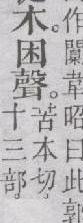 作闑韋昭曰此郭
木。困聲。苦本切。十三部。